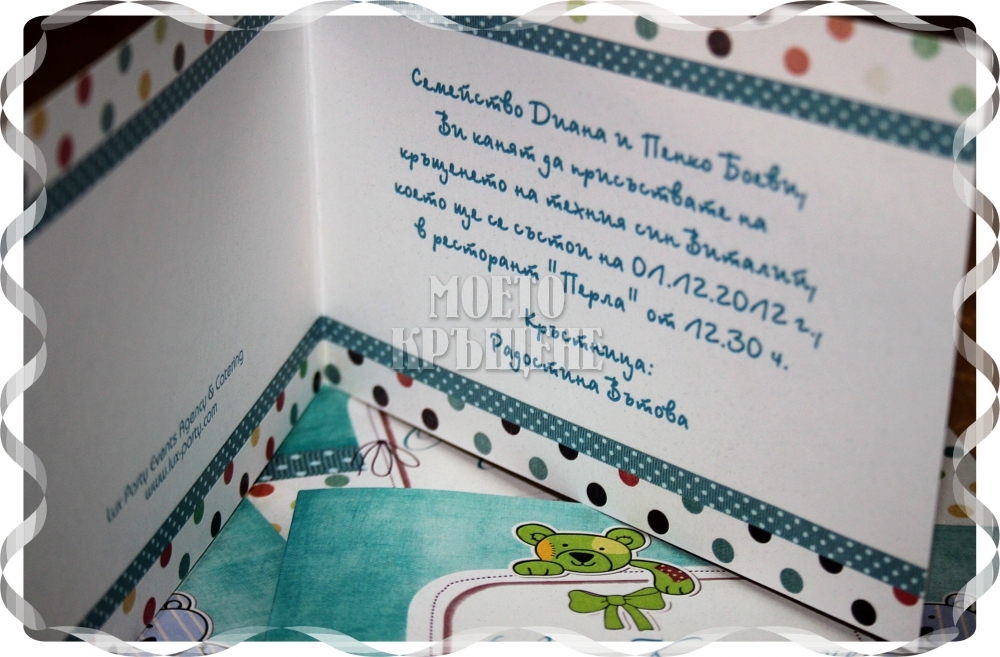 Семейство Диана и Пенко Боеви,
Ви канят да присъствате на
кръщенето на техния син Виталий,
което ще се състои на 01.12.2012 г.,
в ресторант "Перла" от 12.30 ч.
Кръстница:
Радостина Вътова
МОЕТО
КРЪЩЕНЕ
Lux Party Events Agency & Catering
www.lux-party.com